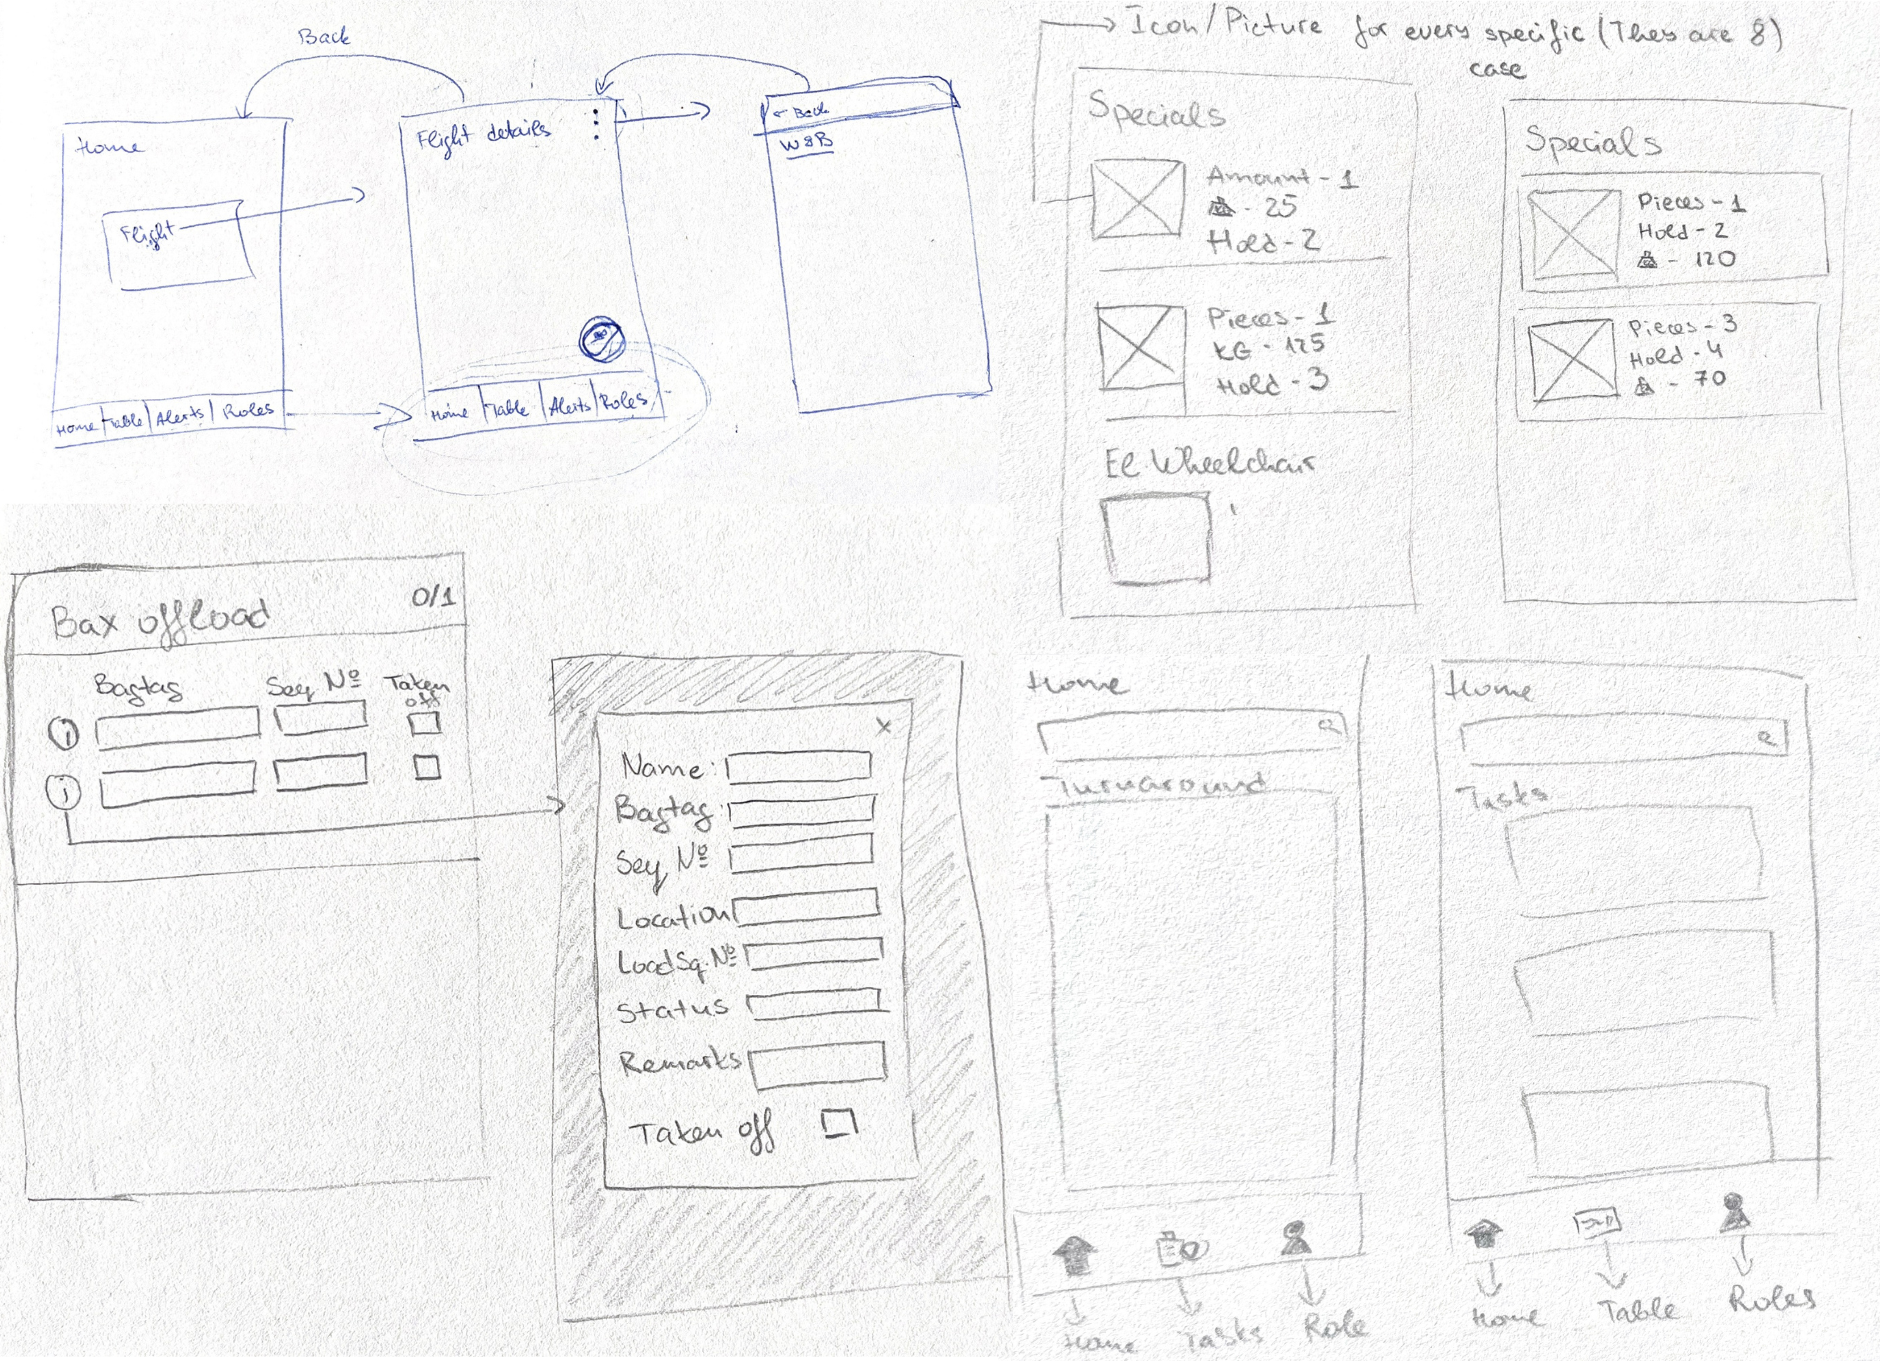 Back
Home
Flight
Home Table Alerts Roles
Flight details
Home Table Alerts Roles
← Back
W&B
Icon/Picture for every specific (They are 8)
case
Specials
Amount - 1
- 25
Hold - 2
Pieces - 1
KG - 125
Hold - 3
El Wheelchair
Specials
Pieces - 1
Hold - 2
- 120
Pieces - 3
Hold - 4
- 70
Bax offload 0/1
Bagtag Seq № Taken
off
i
i
x
Name:
Bagtag:
Seq №
Location
LoadSq.№
Status
Remarks
Taken off
Home
Turnaround
Home Tasks Role
Home
Tasks
Home Table Roles